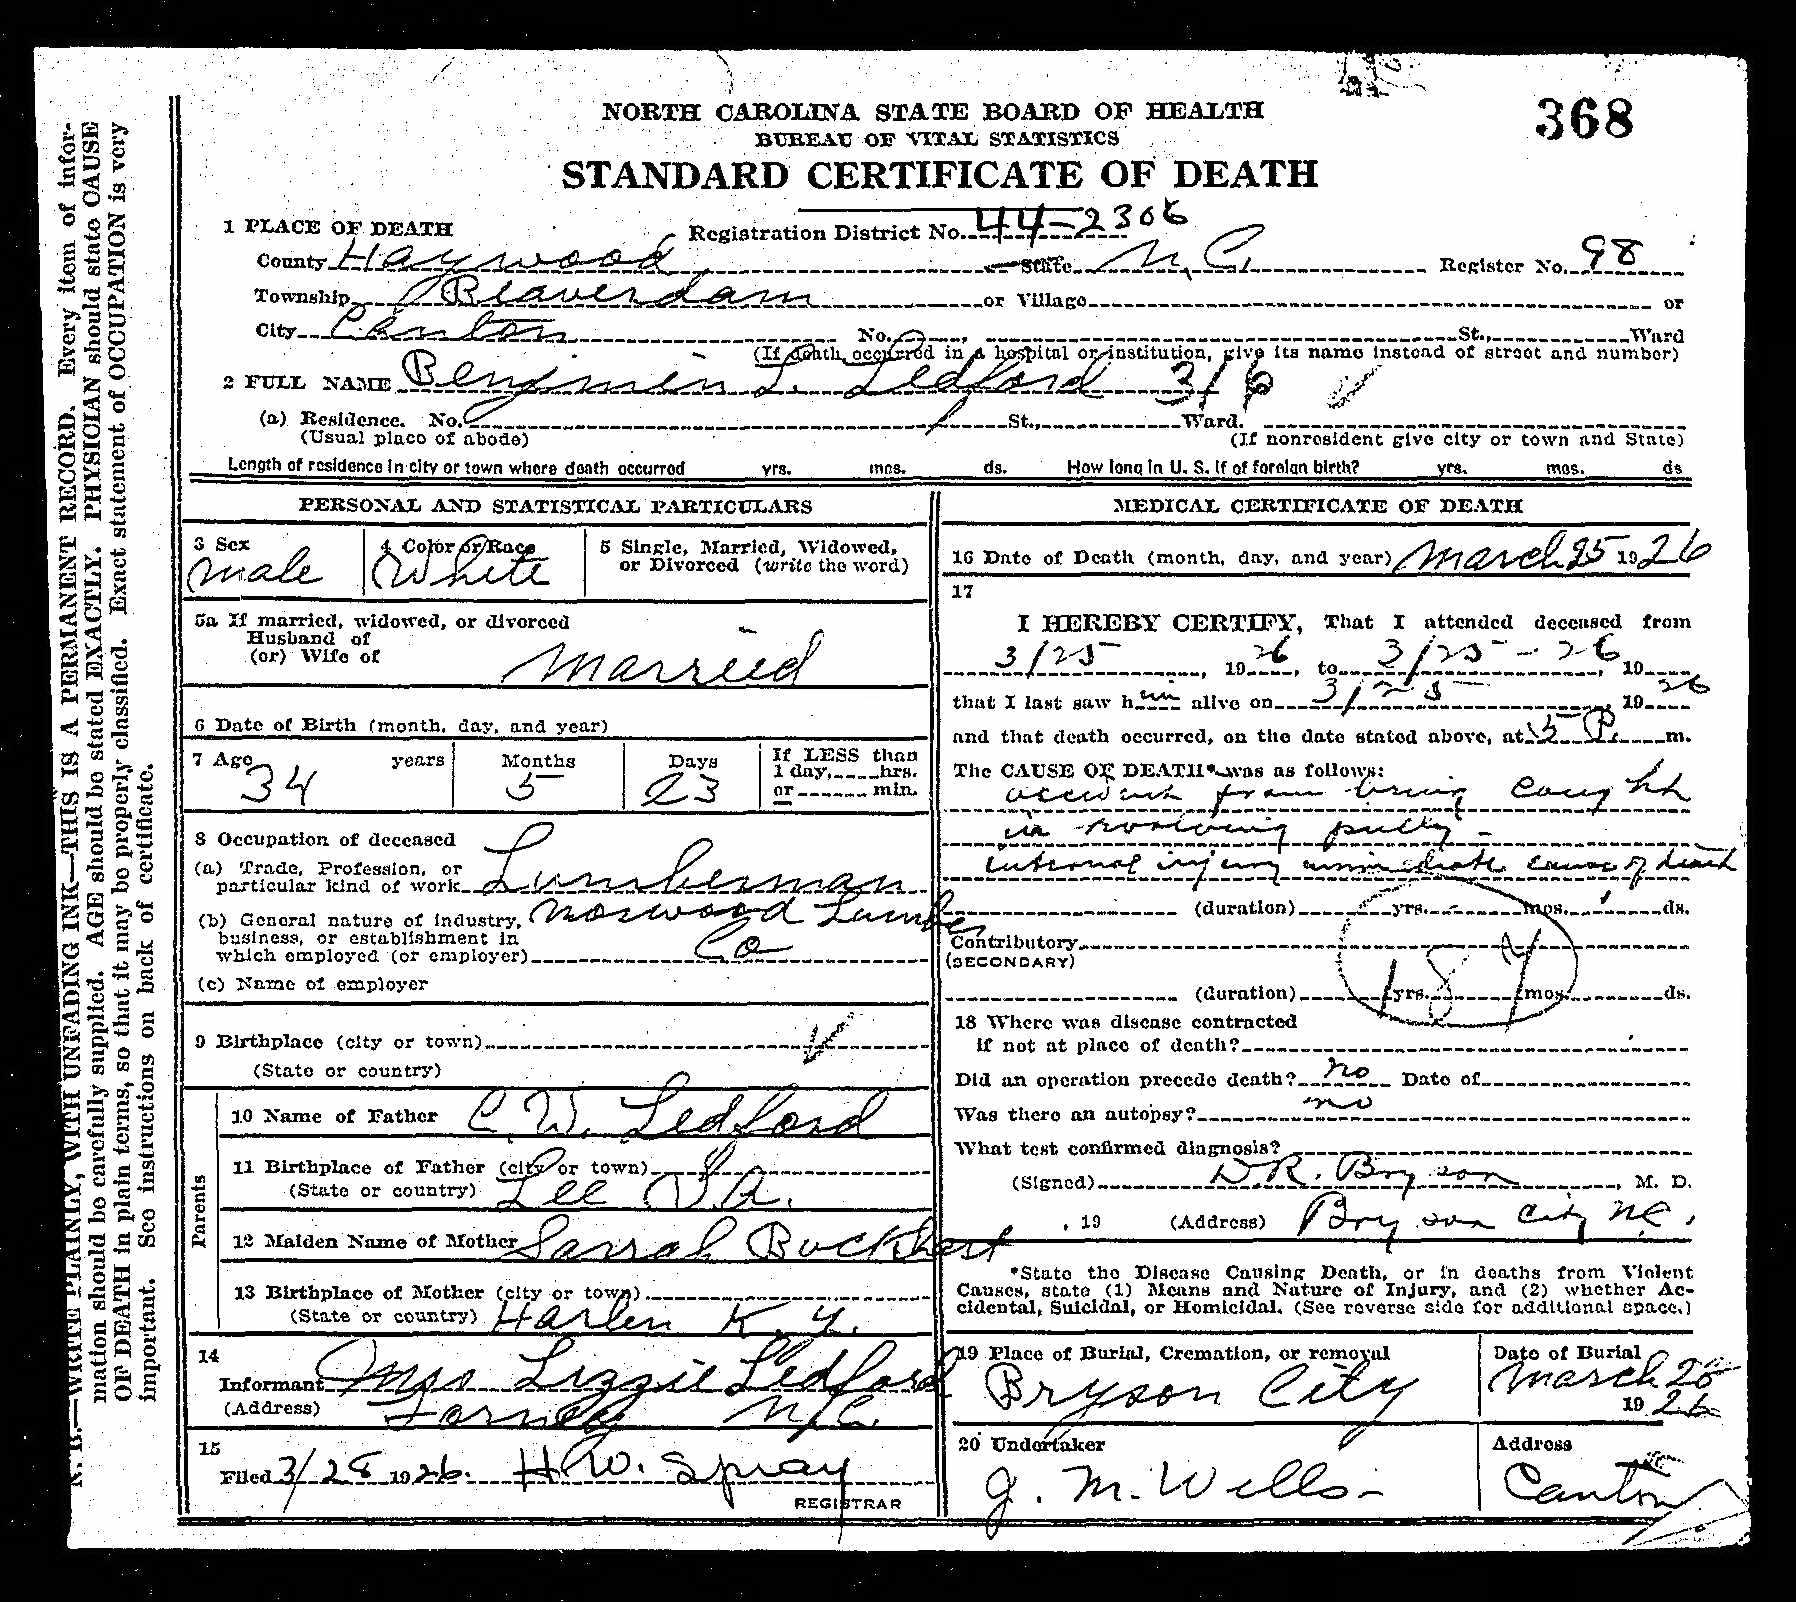 368
NORTH CAROLINA STATE BOARD OF HEALTH
BUREAU OF VITAL STATISTICS
STANDARD CERTIFICATE OF DEATH
1 PLACE OF DEATH
Registration District No. 44-2306
County Haywood State N.C. Register No. 98
Township Beaverdam or Village or
City Canton No. St., Ward
(If death occurred in a hospital or institution, give its name instead of street and number)
2 FULL NAME Benjimen L. Ledford 316
(a) Residence. No. St., Ward.
(Usual place of abode) (If nonresident give city or town and State)
Length of residence in city or town where death occurred yrs. mos. ds. How long in U. S. if of foreign birth? yrs. mos. ds
PERSONAL AND STATISTICAL PARTICULARS
3 Sex
male
4 Color or Race
White
5 Single, Married, Widowed,
or Divorced (write the word)
5a If married, widowed, or divorced
Husband of
(or) Wife of
Married
6 Date of Birth (month, day, and year)
7 Age years Months Days
34 5 23
If LESS than
1 day, hrs.
or min.
8 Occupation of deceased
(a) Trade, Profession, or
particular kind of work Lumberman
(b) General nature of industry, Norwood Lumber
business, or establishment in
which employed (or employer) Co
(c) Name of employer
9 Birthplace (city or town)
(State or country)
Parents
10 Name of Father C. W. Ledford
11 Birthplace of Father (city or town)
(State or country) Lee VA.
12 Maiden Name of Mother Sarrah Buckhert
13 Birthplace of Mother (city or town)
(State or country) Harlen K.y.
14
Informant Mrs Lizzie Ledford
(Address) Forney N.C.
15
Filed 3/28 1926. H.W. Spray
REGISTRAR
MEDICAL CERTIFICATE OF DEATH
16 Date of Death (month, day, and year) March 25 1926
17
I HEREBY CERTIFY, That I attended deceased from
3/25, 1926, to 3/25-26, 19
that I last saw him alive on 3/25, 1926
and that death occurred, on the date stated above, at 5 P. m.
The CAUSE OF DEATH* was as follows:
accident from being caught
in revolving pully -
internal injury immediate cause of death
(duration) yrs. mos. ds.
Contributory
(SECONDARY)
187
(duration) yrs. mos. ds.
18 Where was disease contracted
if not at place of death?
Did an operation precede death? no Date of
Was there an autopsy? no
What test confirmed diagnosis?
(Signed) D.R. Bryson, M. D.
, 19 (Address) Bryson City NC.
*State the Disease Causing Death, or in deaths from Violent
Causes, state (1) Means and Nature of Injury, and (2) whether Ac-
cidental, Suicidal, or Homicidal. (See reverse side for additional space.)
19 Place of Burial, Cremation, or removal
Bryson City
Date of Burial
March 28
1926
20 Undertaker
G. M. Wells
Address
Canton
N. B.—WRITE PLAINLY, WITH UNFADING INK—THIS IS A PERMANENT RECORD. Every item of infor-
mation should be carefully supplied. AGE should be stated EXACTLY. PHYSICIAN should state CAUSE
OF DEATH in plain terms, so that it may be properly classified. Exact statement of OCCUPATION is very
important. See instructions on back of certificate.